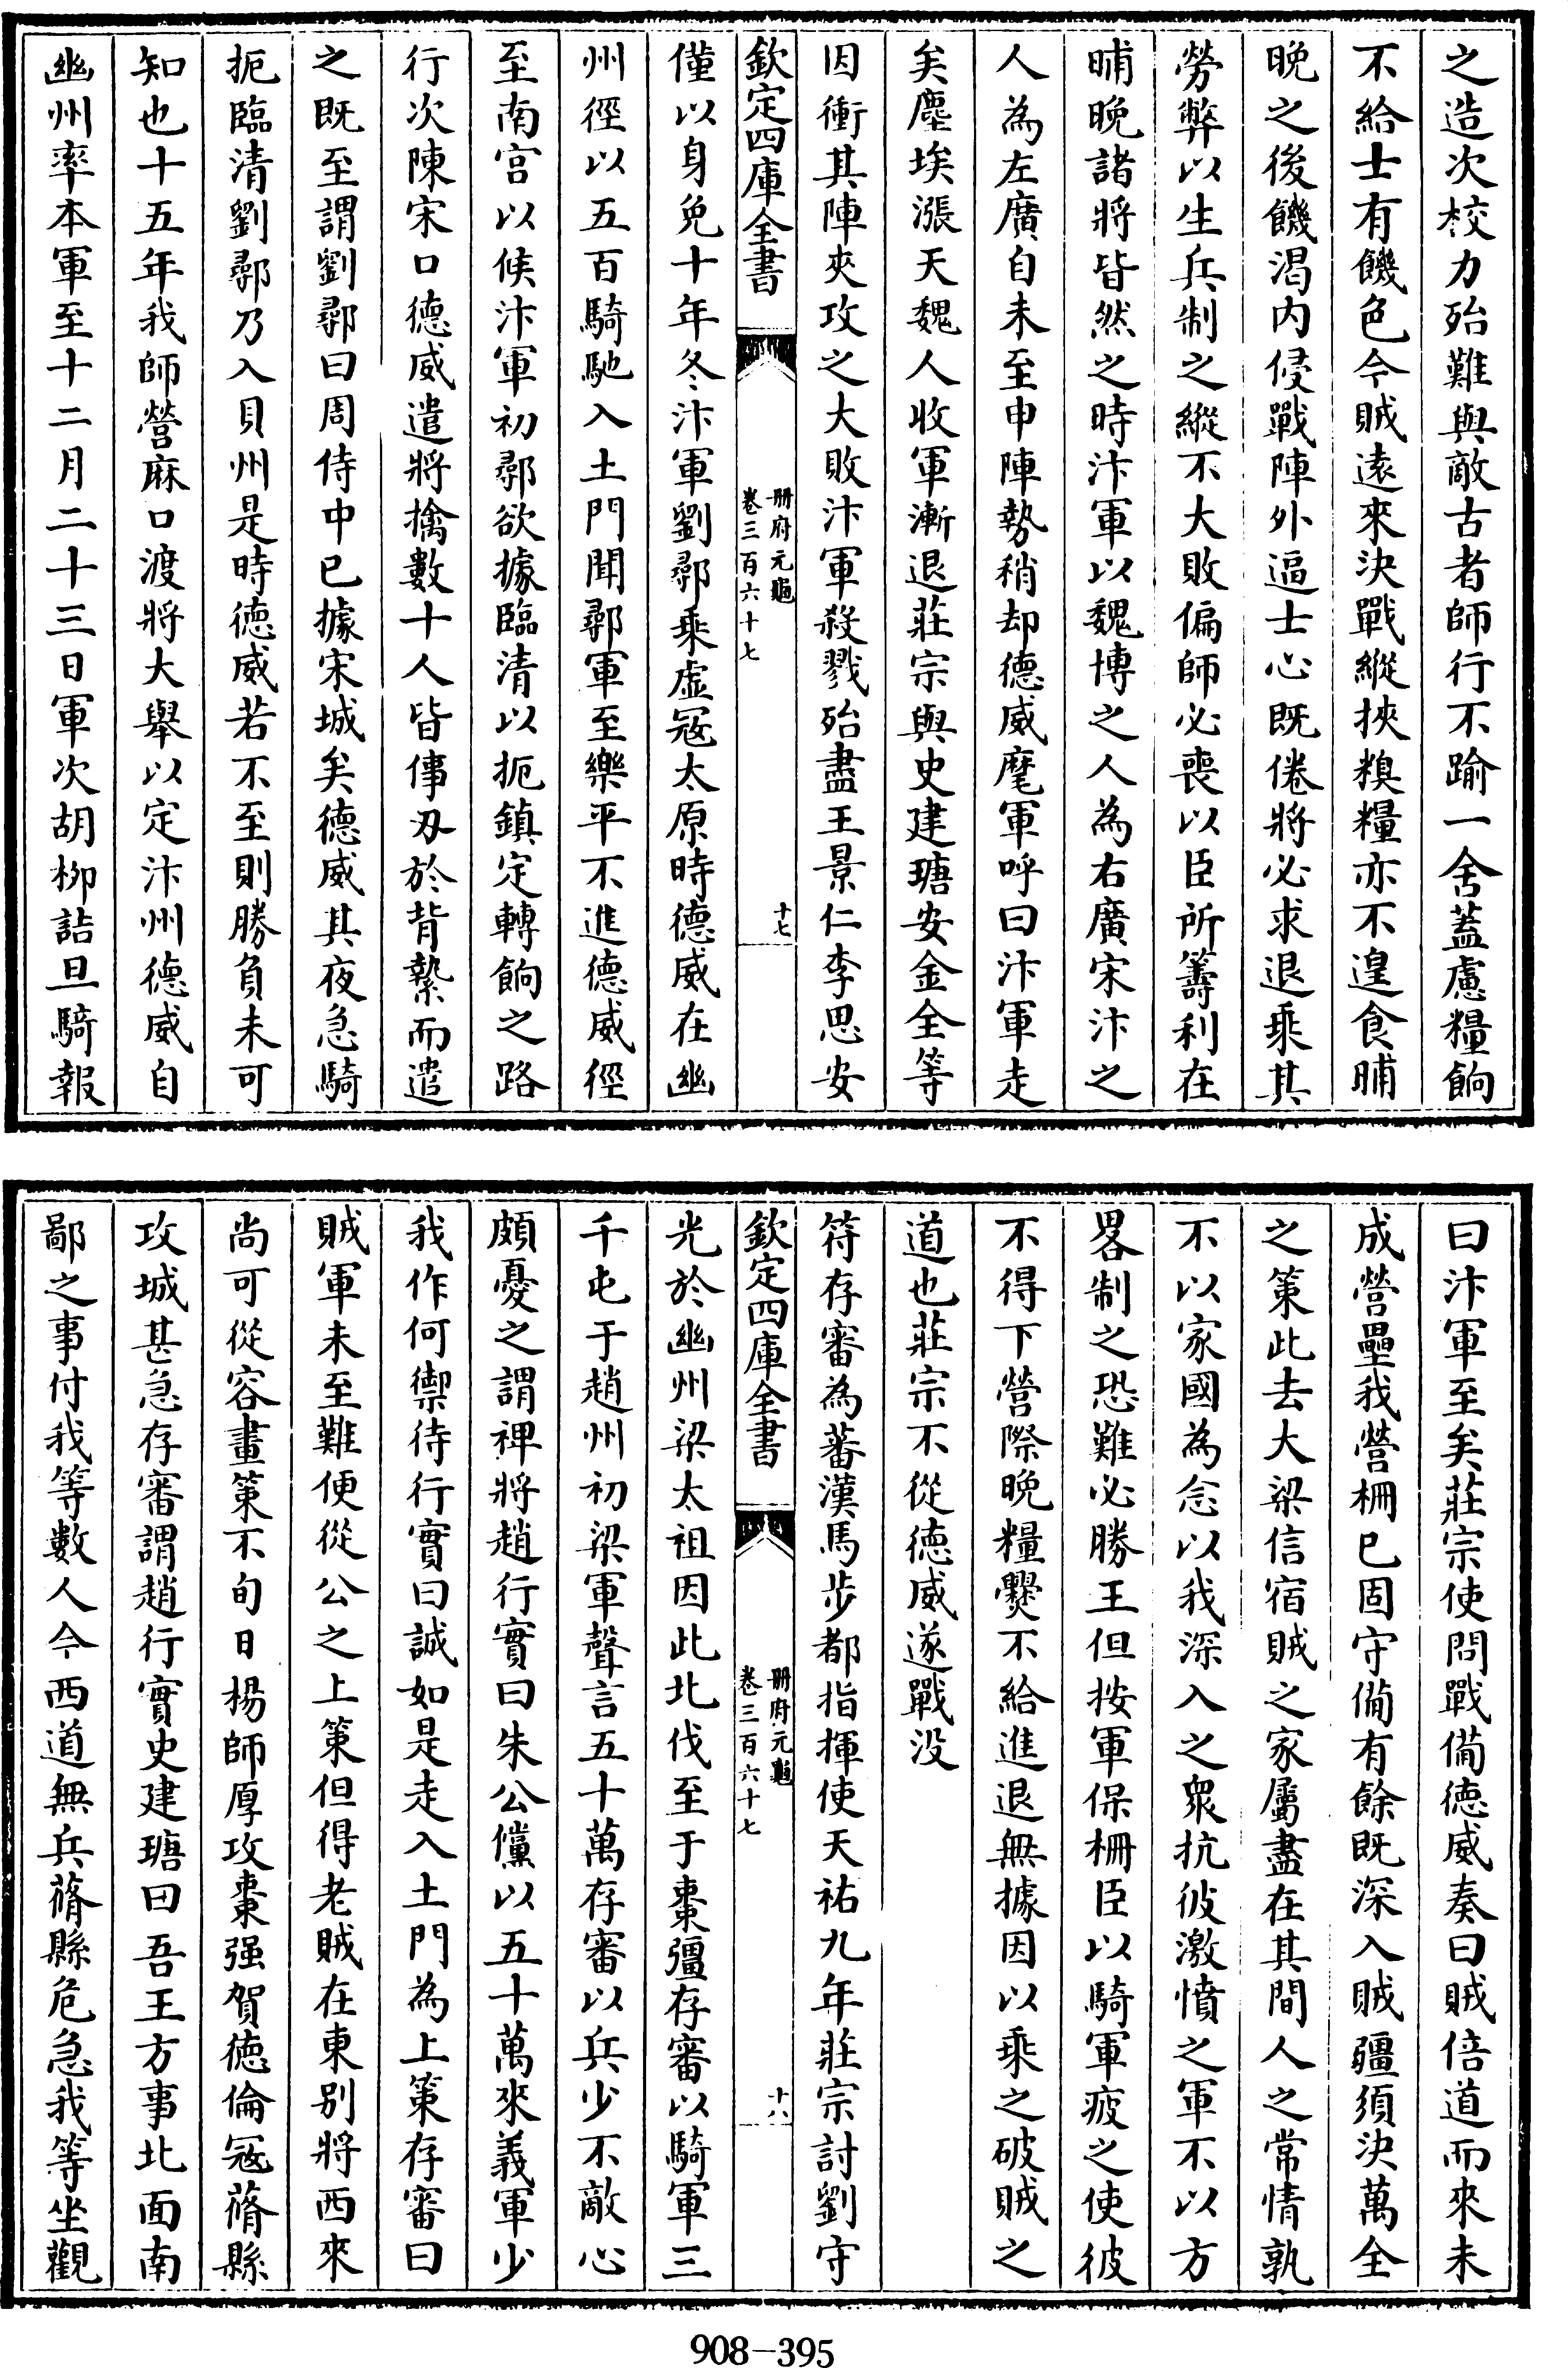 之造次校力殆難與敵古者師行不踰一舍蓋慮糧餉
不給士有饑色今賊遠來決戰縱挾糗糧亦不遑食晡
晚之後饑渴内侵戰陣外逼士心既倦將必求退乘其
勞弊以生兵制之縱不大敗偏師必喪以臣所籌利在
晡晚諸將皆然之時汴軍以魏博之人為右廣宋汴之
人為左廣自未至申陣勢稍却德威麾軍呼曰汴軍走
矣塵埃漲天魏人收軍漸退莊宗與史建瑭安金全等
因衝其陣夾攻之大敗汴軍殺戮殆盡王景仁李思安
欽定四庫全書
册府元龜
卷三百六十七
十七
僅以身免十年冬汴軍劉鄩乘虚冦太原時德威在幽
州徑以五百騎馳入土門聞鄩軍至樂平不進德威徑
至南宫以候汴軍初鄩欲據臨清以扼鎮定轉餉之路
行次陳宋口德威遣將擒數十人皆倳刃於背縶而遣
之既至謂劉鄩曰周侍中已據宋城矣德威其夜急騎
扼臨清劉鄩乃入貝州是時德威若不至則勝負未可
知也十五年我師營麻口渡將大舉以定汴州德威自
幽州率本軍至十二月二十三日軍次胡柳詰旦騎報
曰汴軍至矣莊宗使問戰備德威奏曰賊倍道而來未
成營壘我營柵已固守備有餘既深入賊疆須決萬全
之策此去大梁信宿賊之家屬盡在其間人之常情孰
不以家國為念以我深入之衆抗彼激憤之軍不以方
畧制之恐難必勝王但按軍保柵臣以騎軍疲之使彼
不得下營際晚糧爨不給進退無據因以乘之破賊之
道也莊宗不從德威遂戰没
符存審為蕃漢馬步都指揮使天祐九年莊宗討劉守
欽定四庫全書
册府元龜
卷三百六十七
十八
光於幽州梁太祖因此北伐至于棗彊存審以騎軍三
千屯于趙州初梁軍聲言五十萬存審以兵少不敵心
頗憂之謂裨將趙行實曰朱公儻以五十萬來義軍少
我作何禦待行實曰誠如是走入土門為上策存審曰
賊軍未至難便從公之上策但得老賊在東别將西來
尚可從容畫策不旬日楊師厚攻棗强賀德倫冦蓨縣
攻城甚急存審謂趙行實史建瑭曰吾王方事北面南
鄙之事付我等數人今西道無兵蓨縣危急我等坐觀
908-395